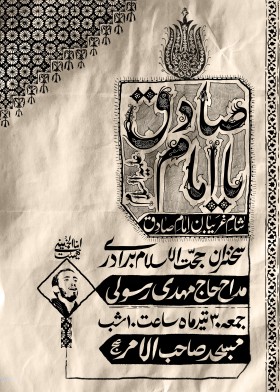 یا امام صادق
علیه السلام
شام غریبان امام صادق
سخنران حجت الاسلام برادری
مداح حاج مهدی رسولی
جمعه ۳۰ تیر ماه ساعت ۱۰ شب
مسجد صاحب الامر عج